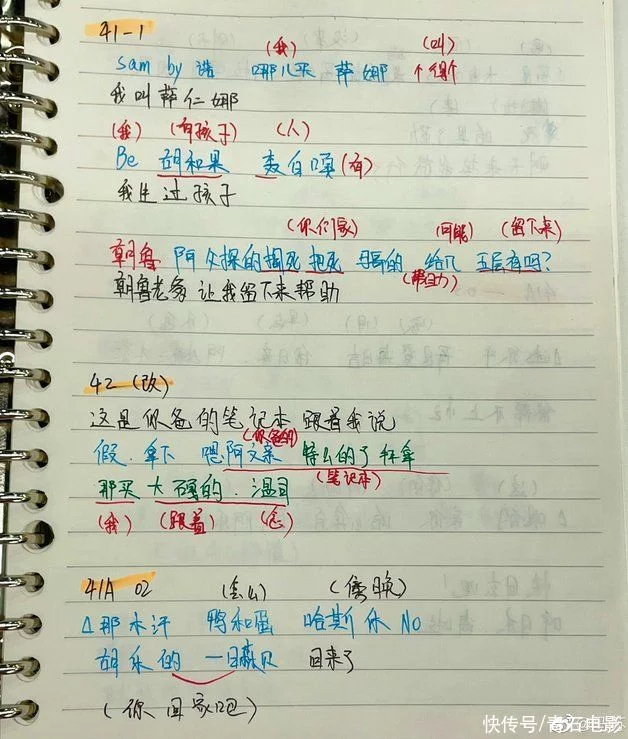 41-1
(我) (叫)
sam by 诺 哪儿买 萨娜 个得个
我叫萨仁娜
(我) (有孩子) (人)
Be 胡和果 麦白嘎(有)
我生过孩子
(你们家) (可能) (留下来)
朝鲁 阿 的 哥的 给几 五层有吗?
(帮助力)
朝鲁老爹 让我留下来帮助
42 (改)
这是你爸的笔记本 跟着我说
(你爸的)
假.拿下 嗯阿文亲 特么的了 杯拿
(笔记本)
那买 大 的.温目
(我) (跟着) (念)
41A 02 (怎么) (傍晚)
Δ那木汗 鸭和蛋 哈斯依 No
胡乐的 一日森贝 回来了
(你回家吧)
快传号/青石电影